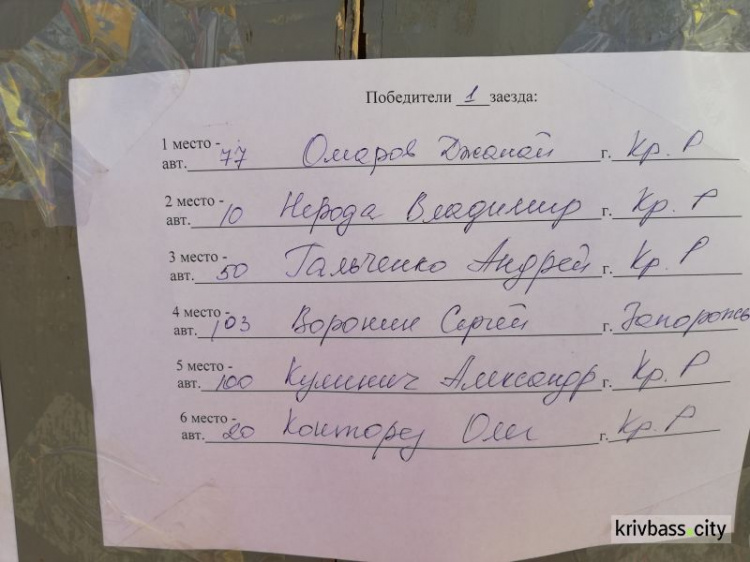 Победители 1 заезда:
1 место -
авт. 77 Омаров Джанай г. Кр. Р
2 место -
авт. 10 Нерода Владимир г. Кр. Р
3 место -
авт. 50 Гальченко Андрей г. Кр. Р
4 место -
авт. 103 Воронин Сергей г. Запорожье
5 место -
авт. 100 Кулинич Александр г. Кр. Р
6 место -
авт. 20 Конторез Олег г. Кр. Р
krivbass.city